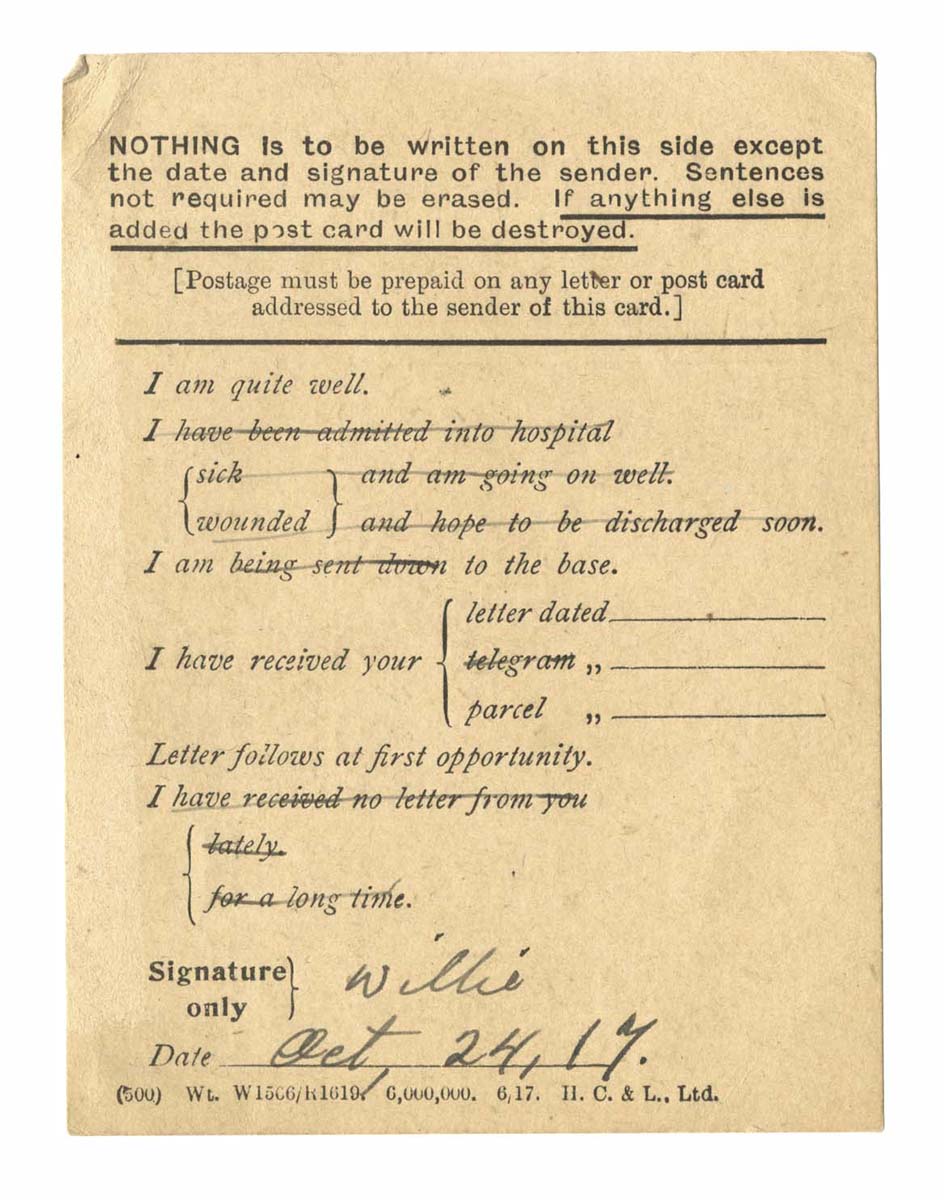 NOTHING is to be written on this side except
the date and signature of the sender. Sentences
not required may be erased. If anything else is
added the post card will be destroyed.
[Postage must be prepaid on any letter or post card
addressed to the sender of this card.]
I am quite well.
I have been admitted into hospital
sick and am going on well.
wounded and hope to be discharged soon.
I am being sent down to the base.
letter dated
I have received your telegram „
parcel „
Letter follows at first opportunity.
I have received no letter from you
lately.
for a long time.
Signature
only
Willie
Date Oct, 24, 17.
(500) Wt. W1566/R1619 6,000,000. 6/17. H. C. & L., Ltd.